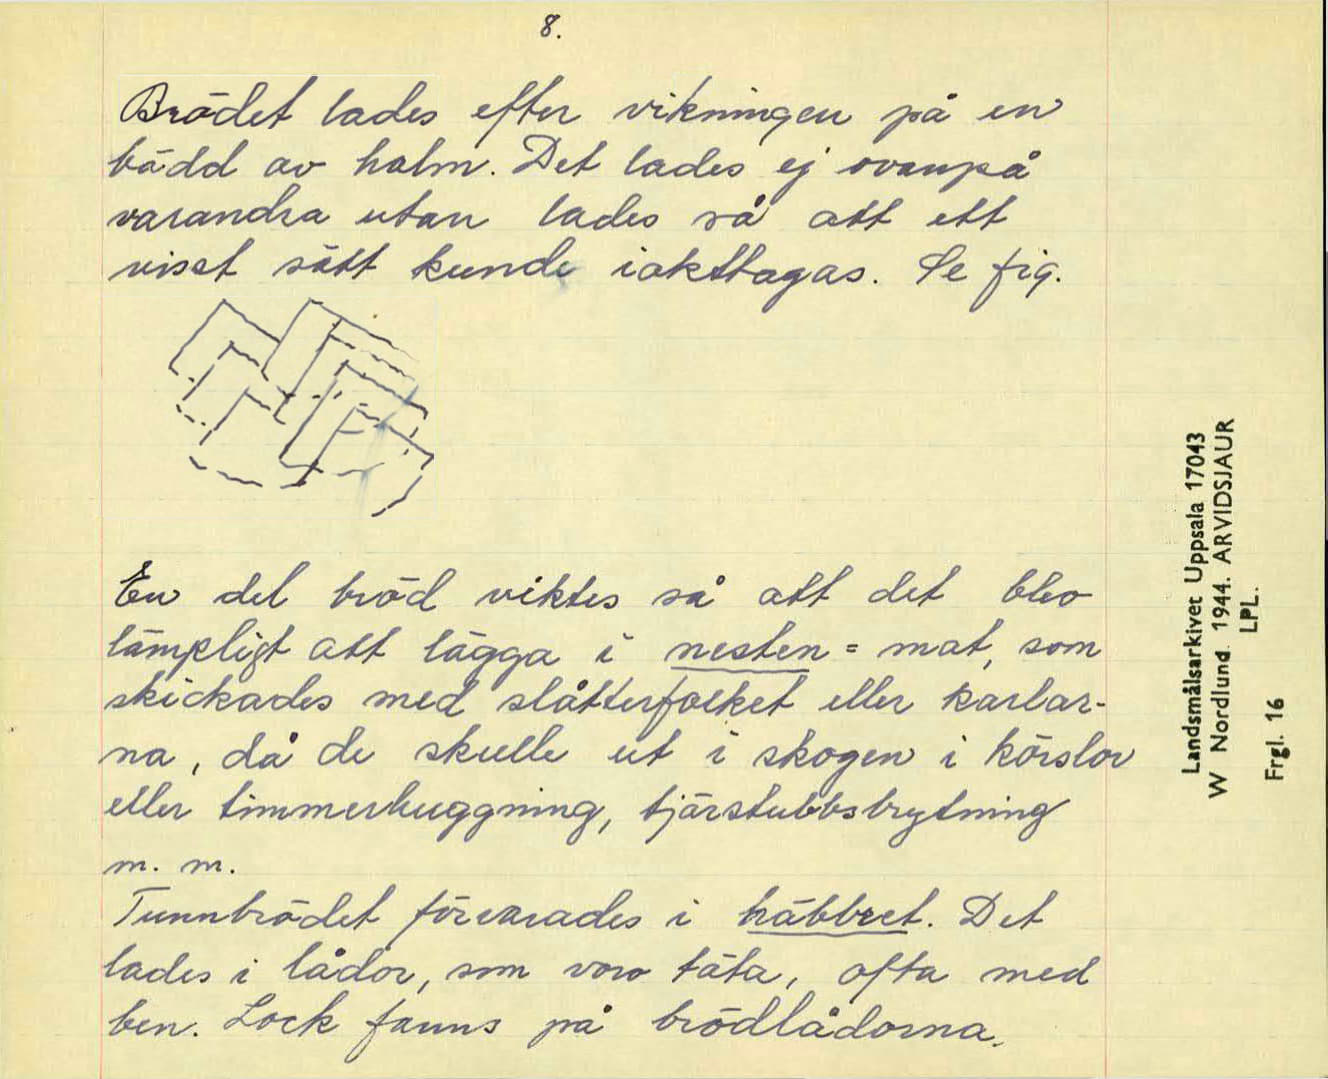 8.
Brödet lades efter vikningen på en
bädd av halm. Det lades ej ovanpå
varandra utan lades så att ett
visst sätt kunde iakttagas. Se fig.
En del bröd viktes så att det blev
lämpligt att lägga i nesten = mat, som
skickades med slåtterfolket eller karlar-
na, då de skulle ut i skogen i körslor
eller timmerhuggning, tjärstubbsbrytning
m. m.
Tunnbrödet förvarades i häbbret. Det
lades i lådor, som voro täta, ofta med
ben. Lock fanns på brödlådorna.
Landsmålsarkivet Uppsala 17043
W Nordlund. 1944. ARVIDSJAUR
LPL.
Frgl. 16